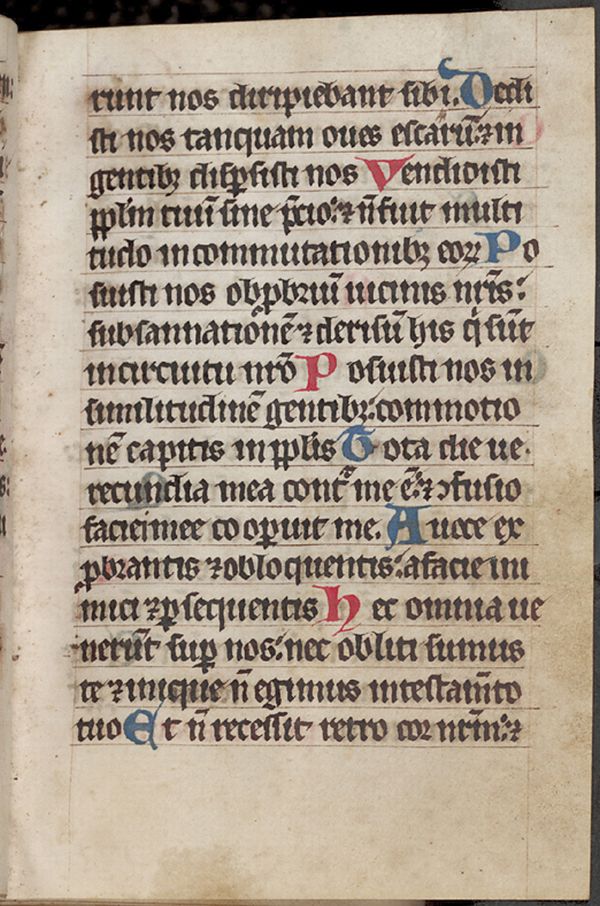 runt nos diripiebant sibi. Dedi
sti nos tanquam oues escarū: ⁊ in
gentibꝫ disꝑsisti nos Vendidisti
pplm tuū sine p̄cio: ⁊ n̄ fuit multi
tudo in commutationibꝫ eoꝝ Po
suisti nos obꝓbriū uicinis nr̄is:
subsannationē ⁊ derisū his q̇ sūt
in circuitu nrō Posuisti nos in
similitudinē gentibꝫ: commotio
nē capitis in pplis Tota die ue
recundia mea contᵃ me ē: ⁊ ꝯfusio
faciei mee cooꝑuit me. A uoce ex
ꝓbrantis ⁊ obloquentis: a facie ini
mici ⁊ ꝑsequentis Hec omnia ue
nerūt suꝑ nos: nec obliti sumus
te ⁊ inique n̄ egimus in testam̄to
tuo Et n̄ recessit retro cor nr̄m: ⁊